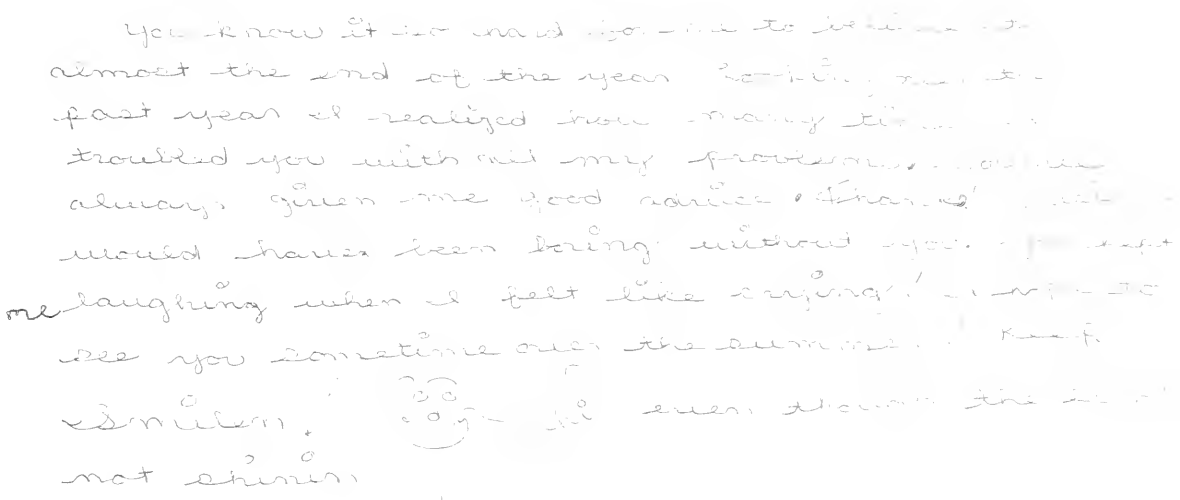 You know it is so hard for me to believe it
almost the end of the year looking
past year I realized how many
troubled you with all my problems,
always given me good advice. Thanks!
would haves been boring without you. kept
me laughing when I felt like crying!!
see you sometime over the summer. Keep
smilen,  even though the
not shinin